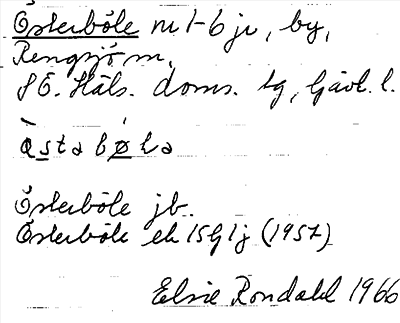 Österböle nr 1-6 jr, by,
Rengsjö sn,
SÖ. Häls. doms. tg, Gävl. l.
östabøla
Österböle jb.
Österböle ek 15G1j (1957)
Elsie Rondahl 1966